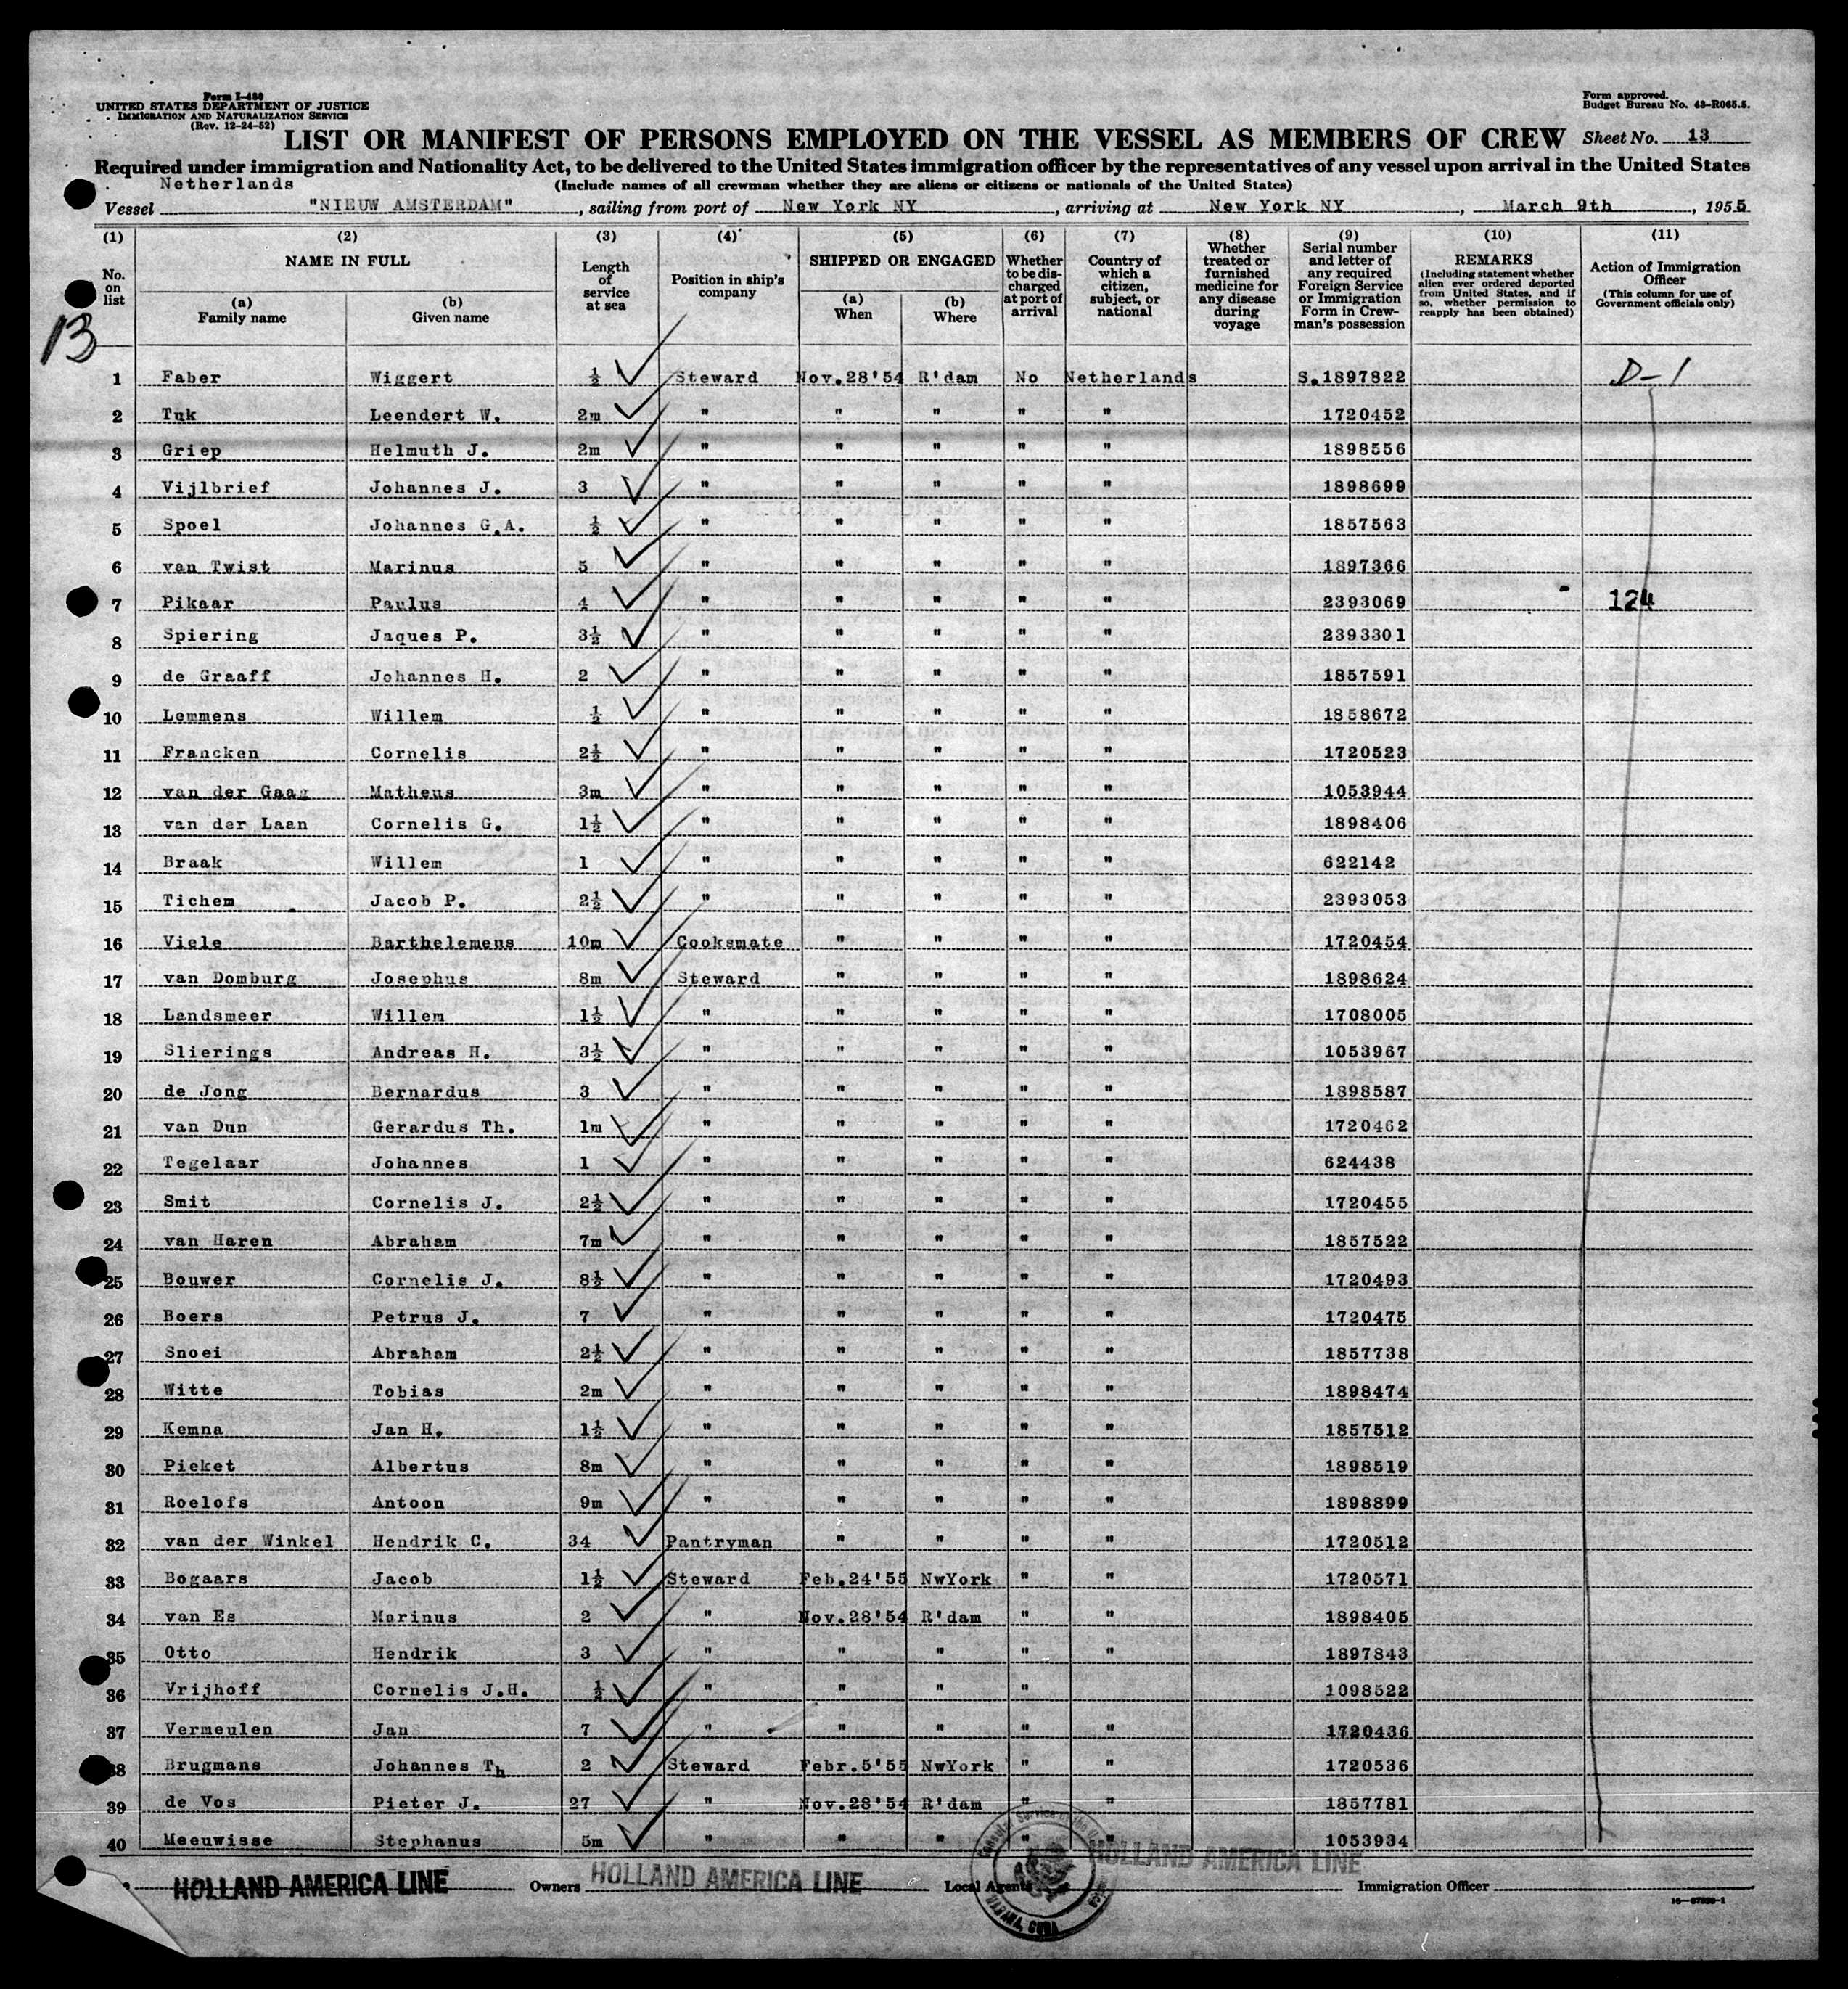 Form I-480
UNITED STATES DEPARTMENT OF JUSTICE
IMMIGRATION AND NATURALIZATION SERVICE
(Rev. 12-24-52)
Form approved.
Budget Bureau No. 43-R065.5.
LIST OR MANIFEST OF PERSONS EMPLOYED ON THE VESSEL AS MEMBERS OF CREW Sheet No. 13
Required under immigration and Nationality Act, to be delivered to the United States immigration officer by the representatives of any vessel upon arrival in the United States
Netherlands (Include names of all crewman whether they are aliens or citizens or nationals of the United States)
Vessel "NIEUW AMSTERDAM", sailing from port of New York NY, arriving at New York NY, March 9th, 1955
(1) (2) (3) (4) (5) (6) (7) (8) (9) (10) (11)
No. on list
NAME IN FULL
(a) Family name
(b) Given name
Length of service at sea
Position in ship's company
SHIPPED OR ENGAGED
(a) When
(b) Where
Whether to be discharged at port of arrival
Country of which a citizen, subject, or national
Whether treated or furnished medicine for any disease during voyage
Serial number and letter of any required Foreign Service or Immigration Form in Crewman's possession
REMARKS
(Including statement whether alien ever ordered deported from United States, and if so, whether permission to reapply has been obtained)
Action of Immigration Officer
(This column for use of Government officials only)
13
1 Faber Wiggert ½ Steward Nov.28'54 R'dam No Netherlands S.1897822 D-1
2 Tuk Leendert W. 2m " " " " " 1720452
3 Griep Helmuth J. 2m " " " " " 1898556
4 Vijlbrief Johannes J. 3 " " " " " 1898699
5 Spoel Johannes G.A. ½ " " " " " 1857563
6 van Twist Marinus 5 " " " " " 1897366
7 Pikaar Paulus 4 " " " " " 2393069 124
8 Spiering Jaques P. 3½ " " " " " 2393301
9 de Graaff Johannes H. 2 " " " " " 1857591
10 Lemmens Willem ½ " " " " " 1858672
11 Francken Cornelis 2½ " " " " " 1720523
12 van der Gaag Matheus 3m " " " " " 1053944
13 van der Laan Cornelis G. 1½ " " " " " 1898406
14 Braak Willem 1 " " " " " 622142
15 Tichem Jacob P. 2½ " " " " " 2393053
16 Viele Barthelemeus 10m Cooksmate " " " " 1720454
17 van Domburg Josephus 8m Steward " " " " 1898624
18 Landsmeer Willem 1½ " " " " " 1708005
19 Slierings Andreas H. 3½ " " " " " 1053967
20 de Jong Bernardus 3 " " " " " 1898587
21 van Dun Gerardus Th. 1m " " " " " 1720462
22 Tegelaar Johannes 1 " " " " " 624438
23 Smit Cornelis J. 2½ " " " " " 1720455
24 van Haren Abraham 7m " " " " " 1857522
25 Bouwer Cornelis J. 8½ " " " " " 1720493
26 Boers Petrus J. 7 " " " " " 1720475
27 Snoei Abraham 2½ " " " " " 1857738
28 Witte Tobias 2m " " " " " 1898474
29 Kemna Jan H. 1½ " " " " " 1857512
30 Pieket Albertus 8m " " " " " 1898519
31 Roelofs Antoon 9m " " " " " 1898899
32 van der Winkel Hendrik C. 34 Pantryman " " " " 1720512
33 Bogaars Jacob 1½ Steward Feb.24'55 NwYork " " 1720571
34 van Es Marinus 2 " Nov.28'54 R'dam " " 1898405
35 Otto Hendrik 3 " " " " " 1897843
36 Vrijhoff Cornelis J.H. ½ " " " " " 1098522
37 Vermeulen Jan 7 " " " " " 1720436
38 Brugmans Johannes Th 2 Steward Febr.5'55 NwYork " " 1720536
39 de Vos Pieter J. 27 " Nov.28'54 R'dam " " 1857781
40 Meeuwisse Stephanus 5m " " " " " 1053934
HOLLAND AMERICA LINE Owners HOLLAND AMERICA LINE Local Agents HOLLAND AMERICA LINE Immigration Officer
HABANA, CUBA